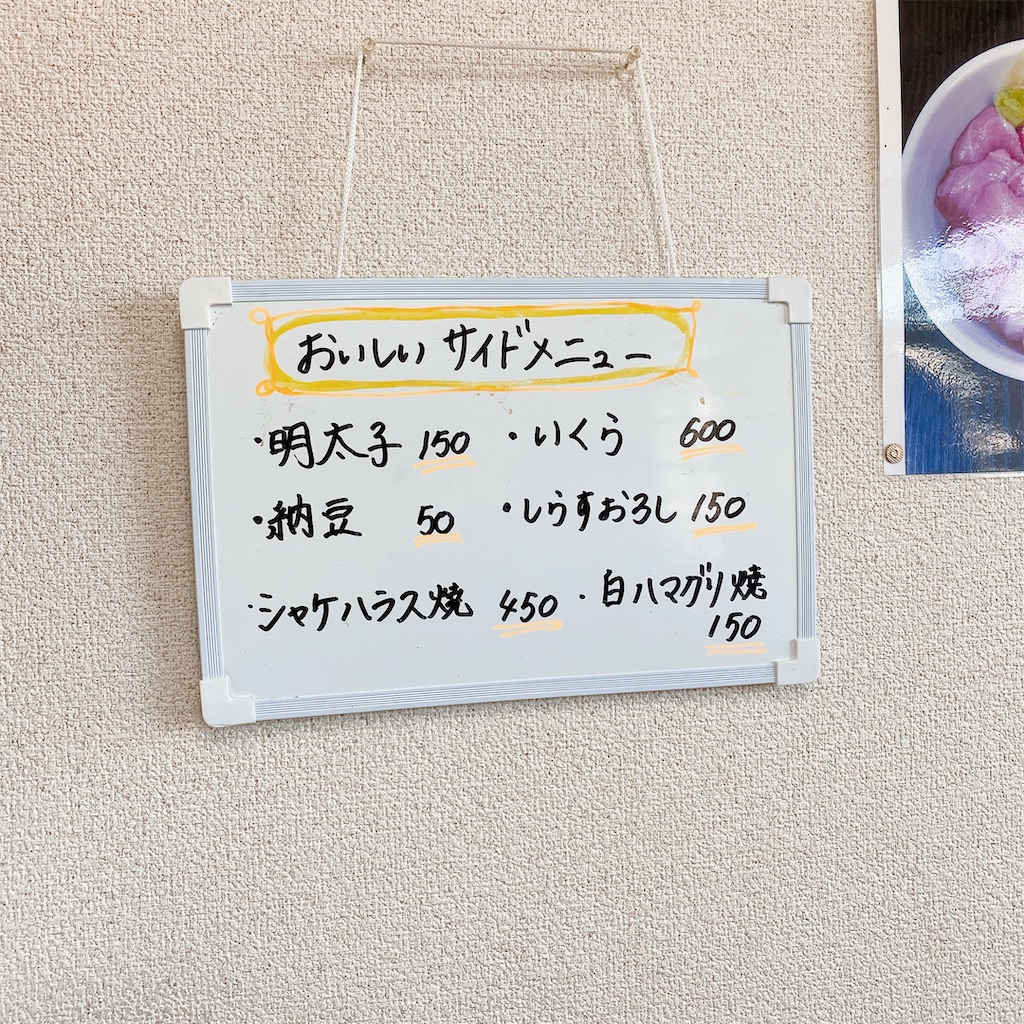 おいしいサイドメニュー
・明太子 150 ・いくら 600
・納豆 50 ・しらすおろし 150
・シャケハラス焼 450 ・白ハマグリ焼
150